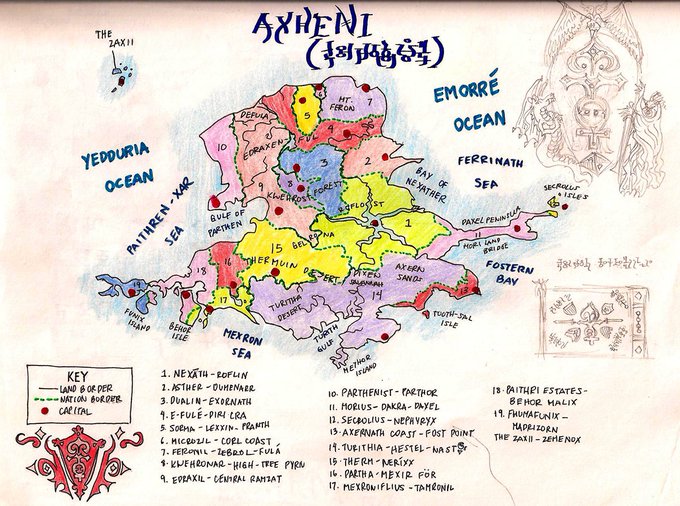 AXHENI
THE
ZAXII
EMORRÉ
OCEAN
YEDDURIA
OCEAN
PAITHREN-XAR
SEA
FERRINATH
SEA
BAY OF
NEXATHER
SECROLUS
ISLES
DAXEL PENINSULA
MORI LAND
BRIDGE
FOSTERN
BAY
MT.
FERON
7
6
5
4
DEFULA
EDRAXEN-
FUL
10
3
2
8
9
KWEHROST
FOREST
GULF OF
PARTHEN
1
12
11
BEL
15
THERMUIN DESERT
16
18
17
19
FUNIX
ISLAND
BEHOR
ISLE
MEXRON
SEA
TURITHA
DESERT
TURITH
GULF
METHOR
ISLAND
14
SAVANNAH
AXERN
SANDS
13
TOOTH-SAL
ISLE
KEY
LAND BORDER
NATION BORDER
CAPITAL
1. NEXÄTH-ROFLIN
2. ASTHER-DUHEMARR
3. DUALIN-EXORNATH
4. E-FULÉ-DIRI CRA
5. SORMA-LEXXIN-PRANTH
6. MICROZIL-CORL COAST
7. FERONIL-ZEBROL-FULÁ
8. KWEHRONAR-HIGH-TREE PYRN
9. EDRAXIL-CENTRAL RAMZAT
10. PARTHENIST-PARTHOR
11. MORIUS-DAKRA-DAXEL
12. SECROLIUS-NEPHYRYX
13. AXERNATH COAST-FOST POINT
14. TURITHIA-HESTEL-NAST
15. THERM-NERÏXX
16. PARTHA-MEXIR FÖR
17. MEXRONIFLIUS-TAMRONIL
18. PAITHRI ESTATES-
BEHOR MALIX
19. FHUMAFUNIX-
MADRIZORN
THE ZAXII-ZEMENOX